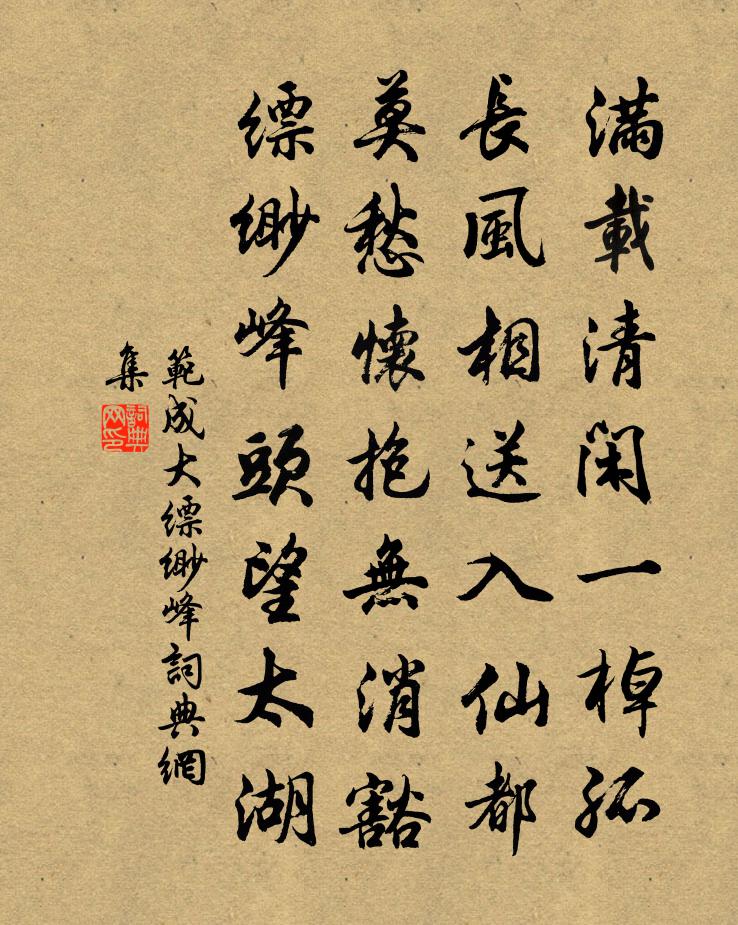 滿載清閑一棹孤
長風相送入仙都
莫愁懷抱無消豁
縹緲峰頭望太湖
範成大縹緲峰詞典網
集
詞典
网印